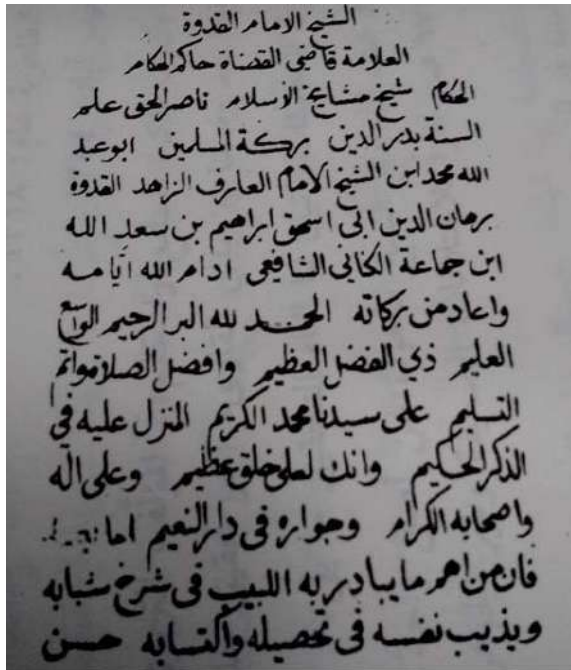 الشيخ الامام القدوة
العلامة قاضى القضاة حاكم الحكام
الحكام شيخ مشايخ الاسلام ناصر الحق علم
السنة بدر الدين بركة المسلمين ابو عبد
الله محمد ابن الشيخ الامام العارف الزاهد القدوة
برهان الدين ابى اسحق ابراهيم بن سعد الله
ابن جماعة الكنانى الشافعى ادام الله أيامه
واعاد من بركاته الحمد لله البر الرحيم الواسع
العليم ذي الفضل العظيم وافضل الصلاة واتم
التسليم على سيدنا محمد الكريم المنزل عليه فى
الذكر الحكيم وانك لعلى خلق عظيم وعلى اله
واصحابه الكرام وجواره فى دار النعيم اما
فان من اهم ما يبادر به اللبيب فى شرخ شبابه
ويذيب نفسه فى تحصيله واكتسابه حسن